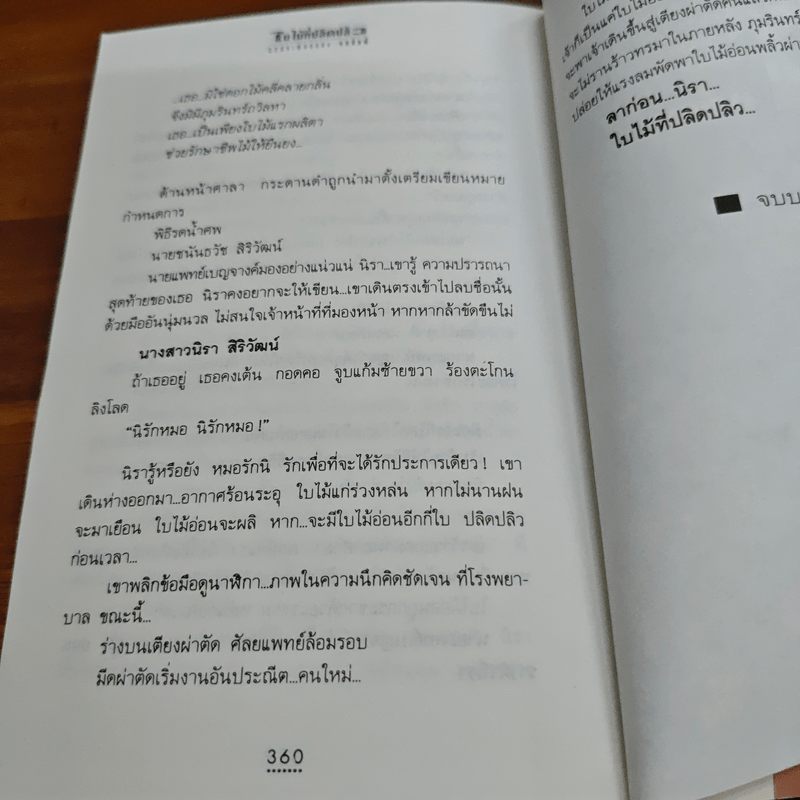 ใบไม้ที่ปลิดปลิว
...เธอ...มิใช่ดอกไม้คลี่คลายกลิ่น
จึงมิมีภุมรินทร์ถวิลหา
เธอ...เป็นเพียงใบไม้แรกผลิตา
ช่วยรักษาชีพไม้ให้ยืนยง...
ด้านหน้าศาลา กระดานดำถูกนำมาตั้งเตรียมเขียนหมาย
กำหนดการ
พิธีรดน้ำศพ
นายชนันธวัช สิริวัฒน์
นายแพทย์เบญจางค์มองอย่างแน่วแน่ นิรา...เขารู้ ความปรารถนา
สุดท้ายของเธอ นิราคงอยากจะให้เขียน...เขาเดินตรงเข้าไปลบชื่อนั้น
ด้วยมืออันนุ่มนวล ไม่สนใจเจ้าหน้าที่ที่มองหน้า หากหากล้าขัดขืนไม่
นางสาวนิรา สิริวัฒน์
ถ้าเธออยู่ เธอคงเต้น กอดคอ จูบแก้มซ้ายขวา ร้องตะโกน
ลิงโลด
“นิรักหมอ นิรักหมอ!”
นิรารู้หรือยัง หมอรักนิ รักเพื่อที่จะได้รักประการเดียว! เขา
เดินห่างออกมา...อากาศร้อนระอุ ใบไม้แก่ร่วงหล่น หากไม่นานฝน
จะมาเยือน ใบไม้อ่อนจะผลิ หาก...จะมีใบไม้อ่อนอีกกี่ใบ ปลิดปลิว
ก่อนเวลา...
เขาพลิกข้อมือดูนาฬิกา...ภาพในความนึกคิดชัดเจน ที่โรงพยา-
บาล ขณะนี้...
ร่างบนเตียงผ่าตัด ศัลยแพทย์ล้อมรอบ
มีดผ่าตัดเริ่มงานอันประณีต...คนใหม่...
360
ใบไม้
เจ้าก็เป็นแค่ใบไม้อ่อน
จะพาเจ้าเดินขึ้นสู่เตียงผ่าตัดคน
จะไม่รานร้าวทรมาในภายหลัง ภุมรินทร์
ปล่อยให้แรงลมพัดพาใบไม้อ่อนพลิ้วผ่า
ลาก่อน...นิรา...
ใบไม้ที่ปลิดปลิว...
■ จบบ